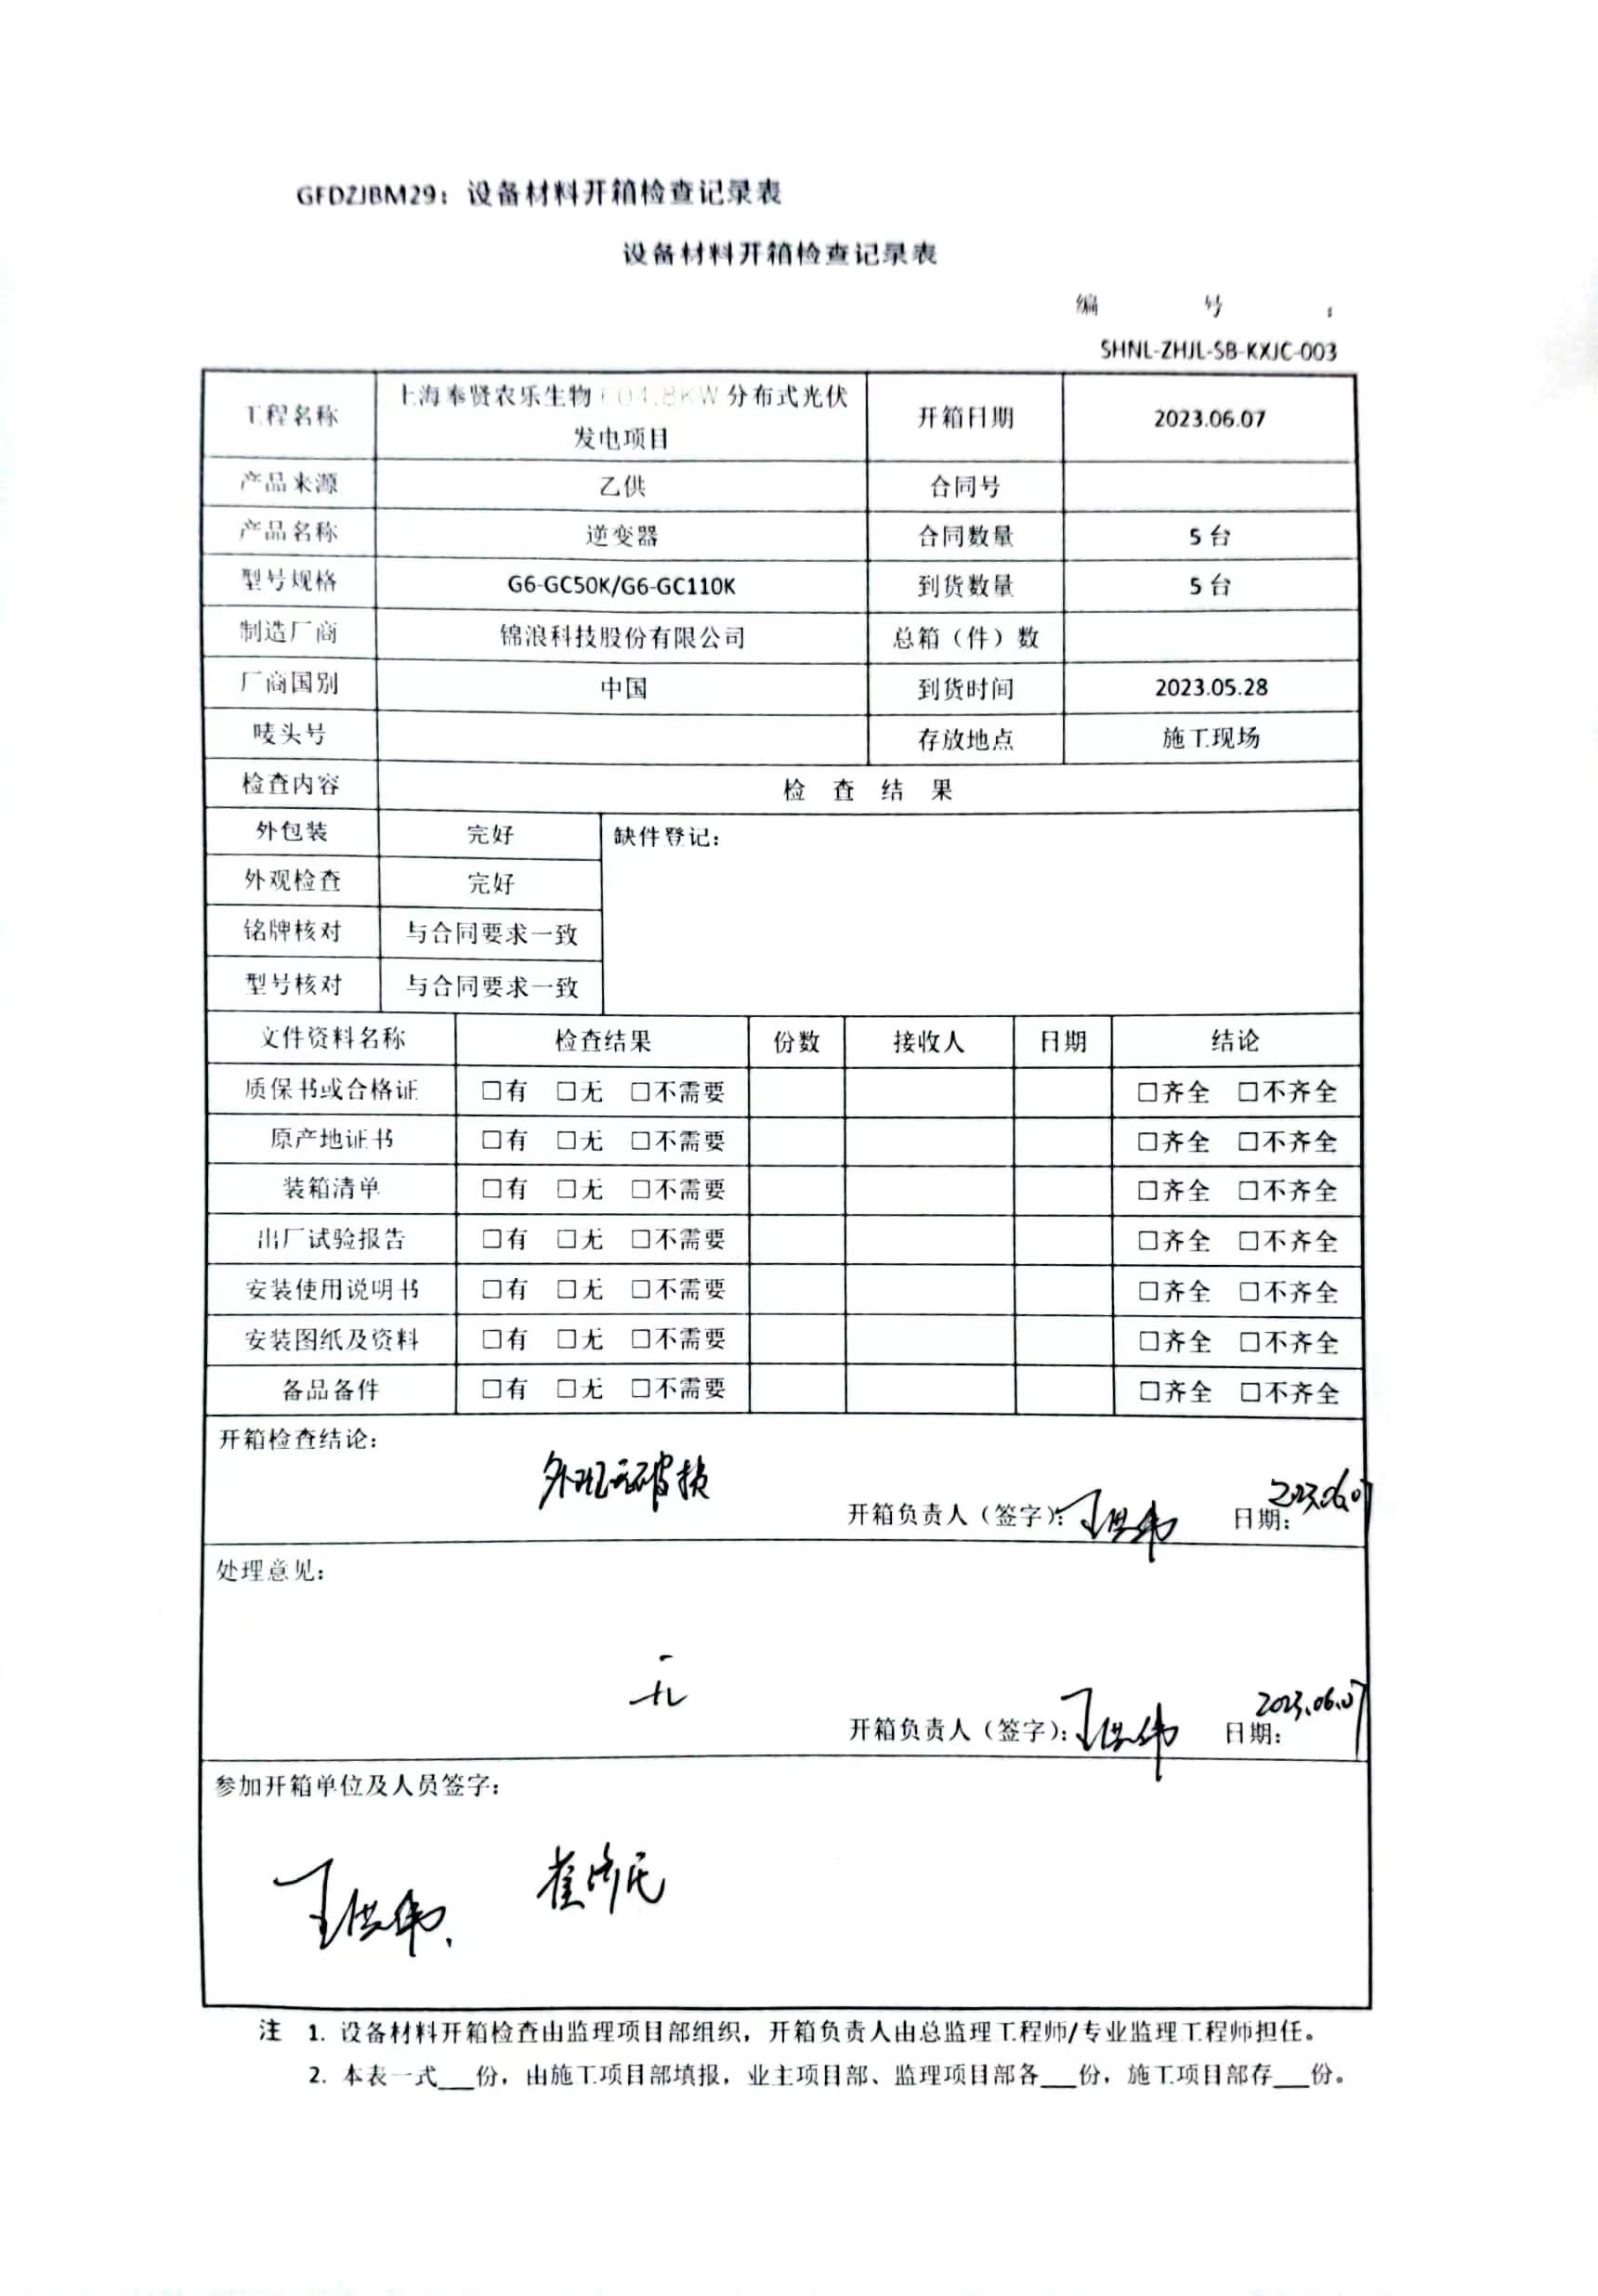 GFDZJBM29：设备材料开箱检查记录表
设备材料开箱检查记录表
编 号 ：
SHNL-ZHJL-SB-KXJC-003
工程名称 上海奉贤农乐生物 604.8KW 分布式光伏 开箱日期 2023.06.07
发电项目
产品来源 乙供 合同号
产品名称 逆变器 合同数量 5 台
型号规格 G6-GC50K/G6-GC110K 到货数量 5 台
制造厂商 锦浪科技股份有限公司 总箱（件）数
厂商国别 中国 到货时间 2023.05.28
唛头号 存放地点 施工现场
检查内容 检 查 结 果
外包装 完好 缺件登记：
外观检查 完好
铭牌核对 与合同要求一致
型号核对 与合同要求一致
文件资料名称 检查结果 份数 接收人 日期 结论
质保书或合格证 □有 □无 □不需要 □齐全 □不齐全
原产地证书 □有 □无 □不需要 □齐全 □不齐全
装箱清单 □有 □无 □不需要 □齐全 □不齐全
出厂试验报告 □有 □无 □不需要 □齐全 □不齐全
安装使用说明书 □有 □无 □不需要 □齐全 □不齐全
安装图纸及资料 □有 □无 □不需要 □齐全 □不齐全
备品备件 □有 □无 □不需要 □齐全 □不齐全
开箱检查结论：
外观无破损
开箱负责人（签字）：王洪伟 日期：2023.06.07
处理意见：
无
开箱负责人（签字）：王洪伟 日期：2023.06.07
参加开箱单位及人员签字：
王洪伟
注 1. 设备材料开箱检查由监理项目部组织，开箱负责人由总监理工程师/专业监理工程师担任。
2. 本表一式___份，由施工项目部填报，业主项目部、监理项目部各___份，施工项目部存___份。